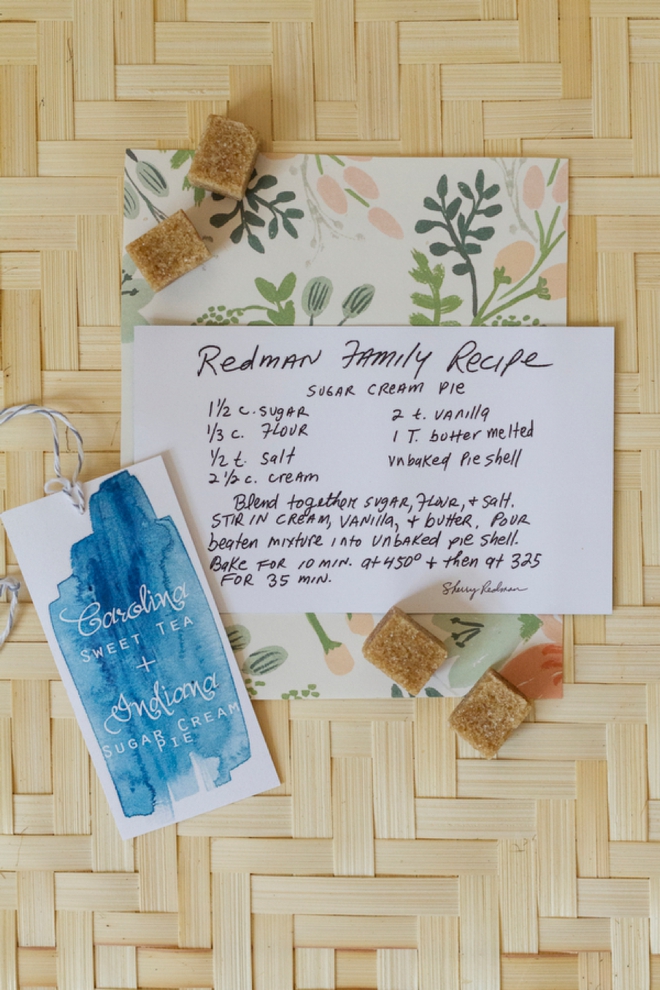 Redman Family Recipe
Sugar Cream Pie
1 1/2 c. sugar
1/3 c. Flour
1/2 t. salt
2 1/2 c. cream
2 t. vanilla
1 T. butter melted
unbaked pie shell
Blend together sugar, flour, + salt.
Stir in cream, vanilla, + butter. Pour
beaten mixture into unbaked pie shell.
Bake for 10 min. at 450° + then at 325
for 35 min.
Sherry Redman
Carolina
SWEET TEA
+
Indiana
SUGAR CREAM
PIE